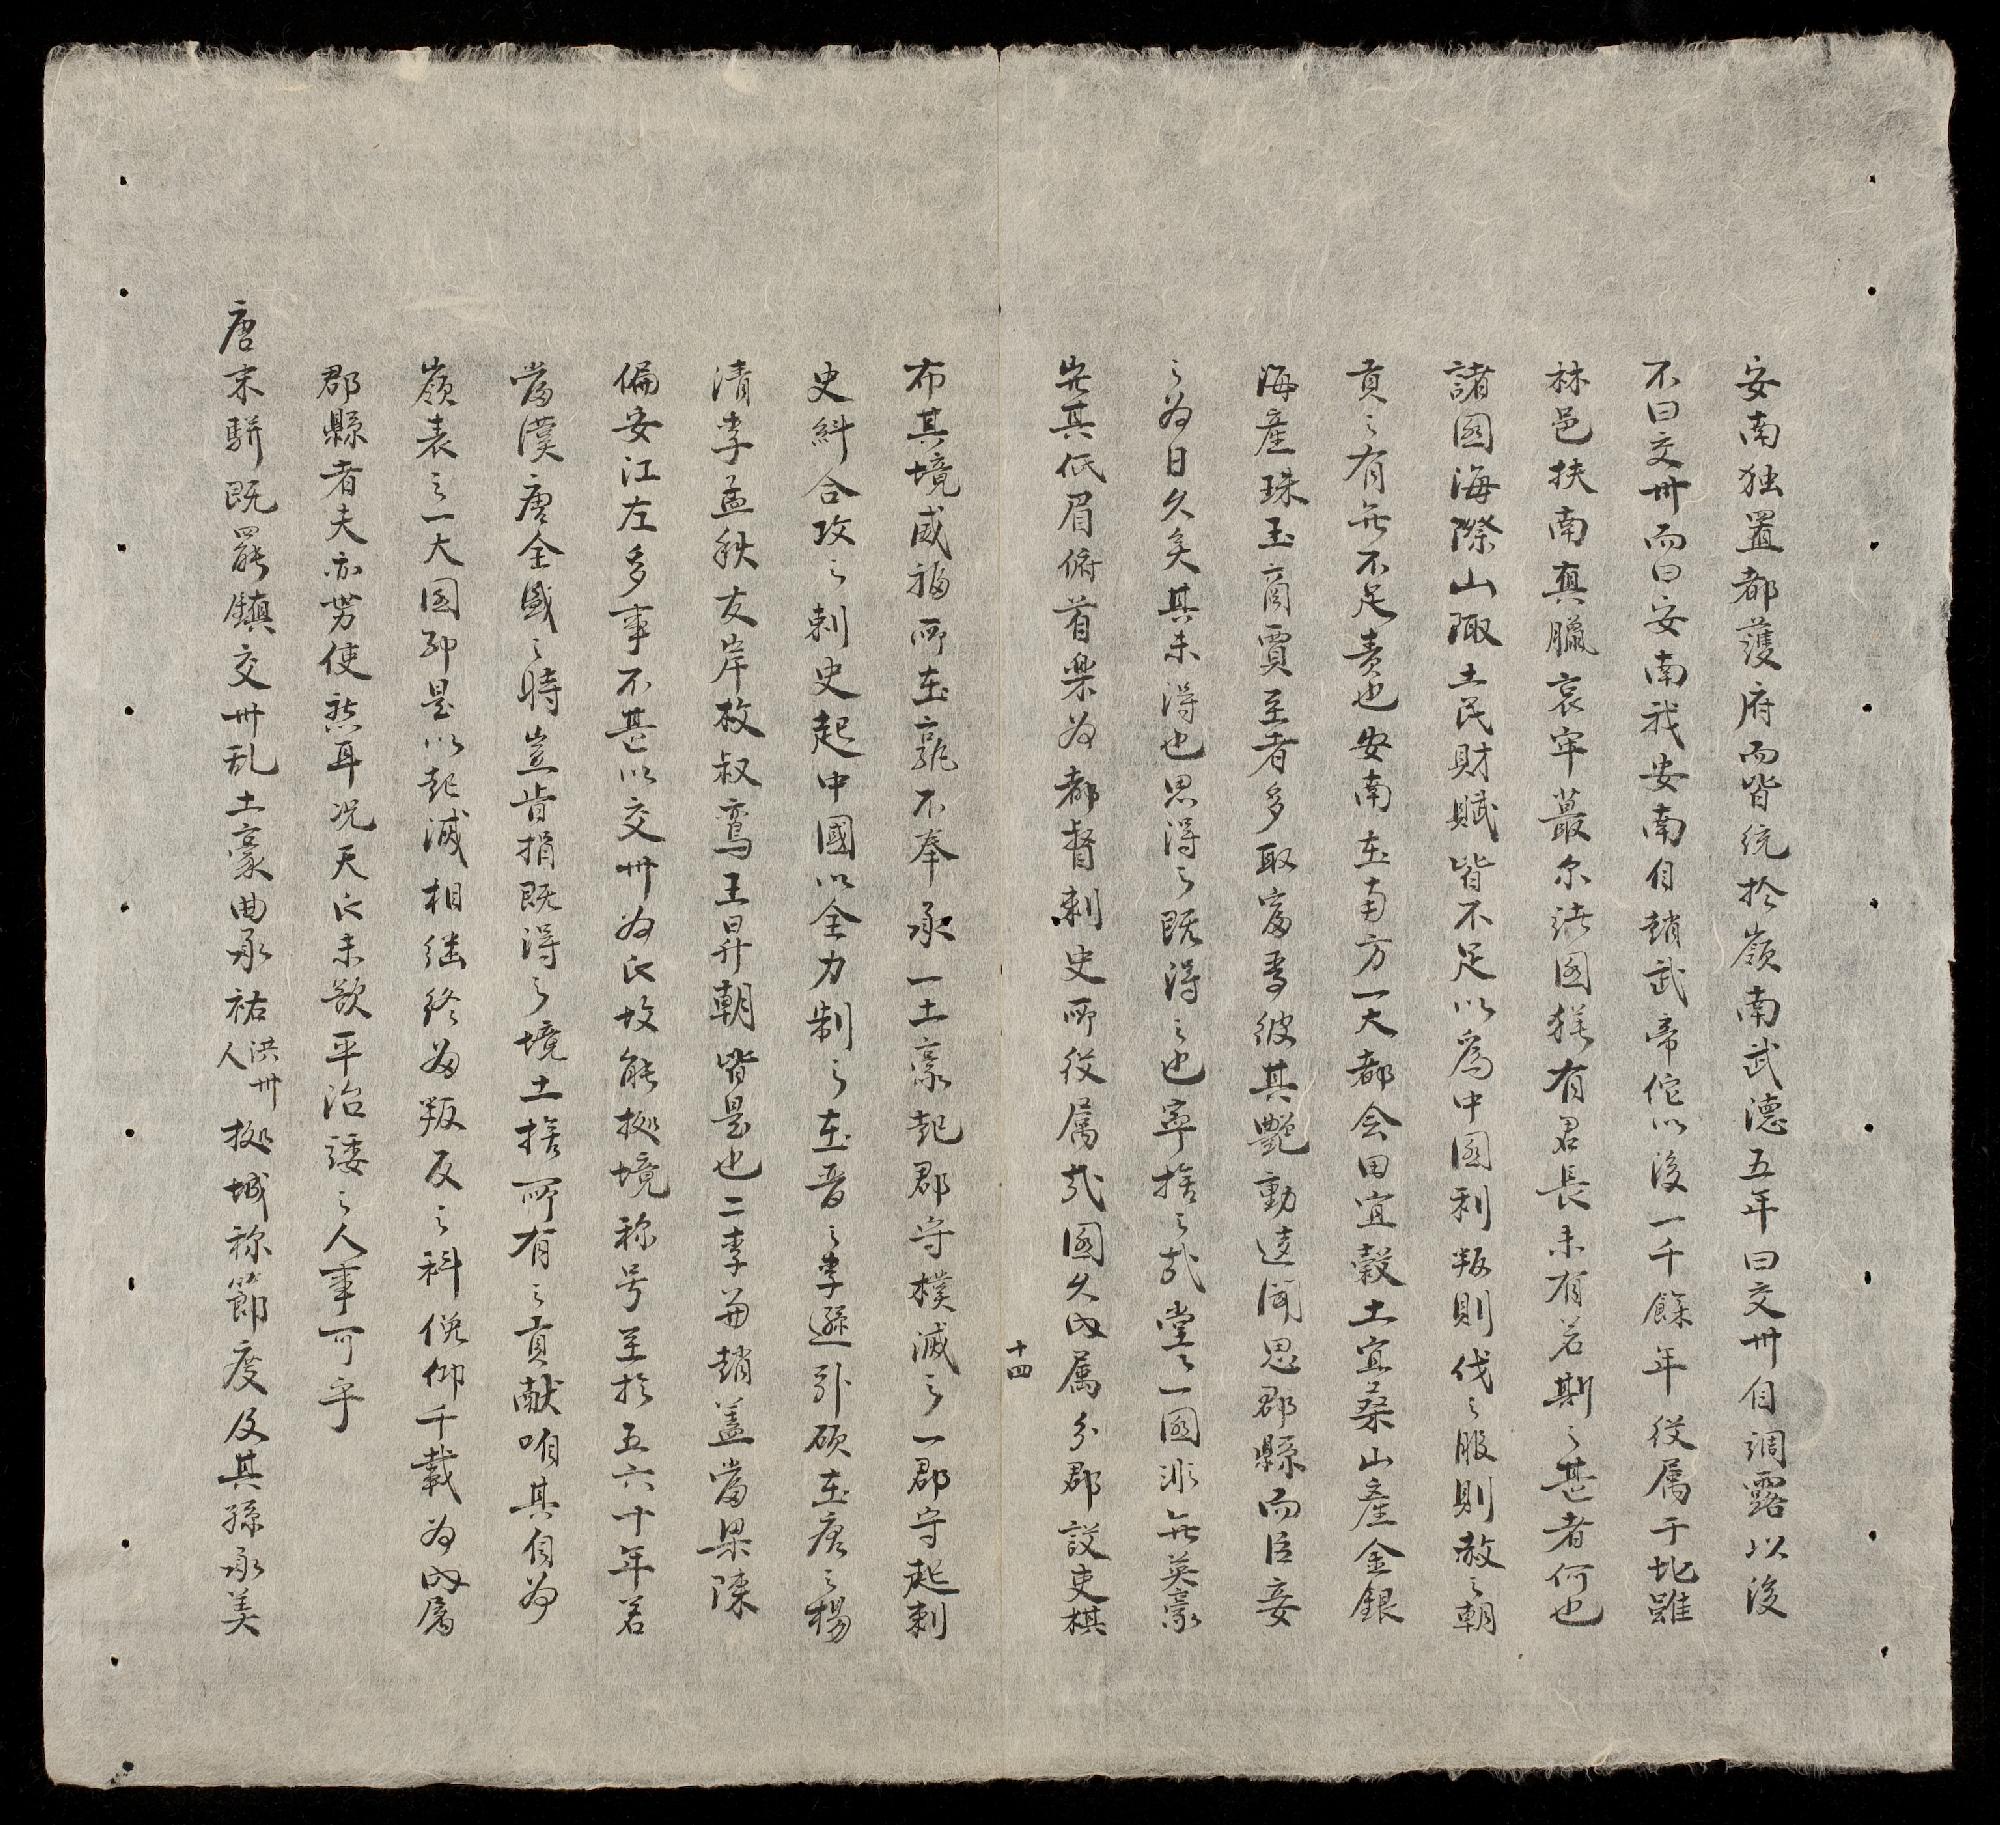 安南独置都護府而皆統於嶺南武德五年曰交州自調露以後
不曰交州而曰安南我安南自趙武帝佗以後一千餘年役属于北雖
林邑扶南真臘哀牢蕞尔諸国猶有君長未有若斯之甚者何也
諸國海際山陬土民財賦皆不足以爲中国利叛則伐之服則赦之朝
貢之有無不足責也安南在南方一大都会田宜穀土宜桑山産金銀
海産珠玉商賈至者多取富焉彼其艶動遠聞思郡縣而臣妾
之为日久矣其未得也思得之既得之也寧捨之哉堂之一國非無英豪
豈其低眉俯首樂为都督刺史所役属哉國久内属分郡設吏棋
十四
布其境威福所在孰不奉承一土豪起郡守撲滅之一郡守起刺
史糾合攻之刺史起中國以全力制之在晋之李遜引碩在唐之楊
清李孟秋友岸枚叔鸞王昇朝皆是也二李与趙盖當梁陳
偏安江左多事不甚以交州为以故能拠境称号至於五六十年若
當漢唐全盛之時豈肯捐既得之境土捨所有之貢献咱其自为
嶺表之一大国耶是以起滅相继終为叛反之科俛仰千載为内属
郡縣者夫亦势使然耳况天之未欲平治諉之人事可乎
唐宋駢既罷鎮交州乱土豪曲承祐洪州人拠城称節度及其孫承美